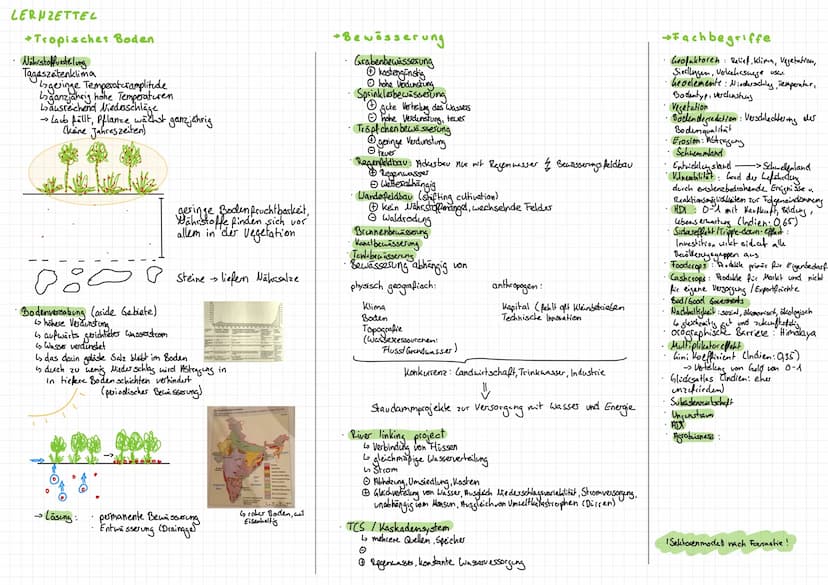 LERNZETTEL
→ Tropischer Boden
Tageszeitenklima
↳ geringe Temperaturamplitude
↳ ganzjährig hohe Temperaturen
↳ ausreichend Niederschläge
→ Laub fällt, Pflanze wächst ganzjährig
(keine Jahreszeiten)
geringe Bodenfruchtbarkeit,
Nährstoffe finden sich vor
allem in der Vegetation
Steine → liefern Nährsalze
Bodenversalzung (aride Gebiete)
↳ höhere Verdunstung
↳ aufwärts gerichteter Wasserstrom
↳ Wasser verdunstet
↳ das darin gelöste Salz bleibt im Boden
↳ durch zu wenig Niederschlag wird
in tiefere Bodenschichten verhindert
(periodischer Bewässerung)
↳ roter Boden, da
Eisenhaltig
→ Lösung: · permanente Bewässerung
· Entwässerung (Drainage)
→ Bewässerung
· Grabenbewässerung
⊕ kostengünstig
⊖ hohe Verdunstung
· Sprinklerbewässerung
⊕ gute Verteilung des Wassers
⊖ hohe Verdunstung, teuer
· Tröpfchenbewässerung
⊕ geringe Verdunstung
⊖ teuer
· Regenfeldbau: Ackerbau nur mit Regenwasser ↯ Bewässerungsfeldbau
⊕ Regenwasser
⊖ Wetterabhängig
· Wanderfeldbau (shifting cultivation)
⊕ kein Nährstoffmangel, wechselnde Felder
⊖ Waldrodung
· Brunnenbewässerung
· Kanalbewässerung
· Tankbewässerung
· Bewässerung abhängig von
physisch geografisch:
Klima
Boden
Topografie
(Wasserressourcen:
Fluss/Grundwasser)
anthropogen:
Kapital (fehlt oft Kleinbetrieben
Technische Innovation
Konkurrenz: Landwirtschaft, Trinkwasser, Industrie
⇓
Staudammprojekte zur Versorgung mit Wasser und Energie
· River linking project
↳ Verbindung von Flüssen
↳ gleichmäßige Wasserverteilung
↳ Strom
⊖ Abholzung, Umsiedlung, Kosten
⊕ Gleichverteilung von Wasser, Ausgleich Niederschlagsvariabilität, Stromversorgung,
unabhängig vom Monsun, Ausgleich von Umweltkatastrophen (Dürren)
· TCS / Kaskadensystem
↳ mehrere Quellen, Speicher
⊖
⊕ Regenwasser, konstante Wasserversorgung
→ Fachbegriffe
· Geofaktoren: Relief, Klima, Vegetation,
Siedlungen, Verkehrswege usw.
· Geoelemente: Niederschlag, Temperatur,
Bodentyp, Verdunstung
· Vegetation
· Bodendegradation: Verschlechterung der
Bodenqualität
· Erosion: Abtragung
· Schwemmland
· Entwicklungsland → Schwellenland
· Vulnerabilität: Grad der Gefährdung
durch existenzbedrohende Ereignisse u.
Reaktionsmöglichkeiten zur Folgeneindämmung
· HDI: 0-1 mit Kaufkraft, Bildung,
Lebenserwartung (Indien: 0,65)
· Sickereffekt/Trickle-down-effekt:
Investition wirkt sich auf alle
Bevölkerungsgruppen aus
· Foodcrops: Produkte primär für Eigenbedarf
· Cashcrops: Produkte für Markt und nicht
für eigene Versorgung / Exportfrüchte
· Bad/Good Governance
· Nachhaltigkeit: sozial, ökonomisch, ökologisch
↳ gleichzeitig gut und zukunftsfähig
· orographische Barriere: Himalaya
· Multiplikatoreffekt
· Gini Koeffizient (Indien: 0,35)
→ Verteilung von Geld von 0-1
· Glücksatlas (Indien: eher
unzufrieden)
· Subsistenzwirtschaft
· Ungunstraum
· Agrobusiness:
! Sektorenmodell nach Fourastié !